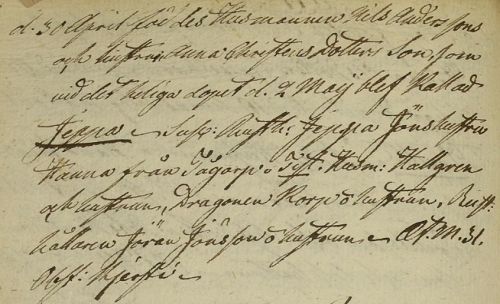 d. 30 April föddes Husmannen Nils Anderssons
och hustrus Anna Christens Dotters Son, som
vid det heliga dopet d. 2 Maij blef kallad
Jeppa. Susp: Rusth: Jeppa Jöns hustru
Hanna från Tågarp. Test. Husm: Hallgren
och hustrun, Dragonen Korp o hustrun, Rust-
hållaren Jöran Jönsson o hustrun. Æt. M. 31.
Obst: Kjersti